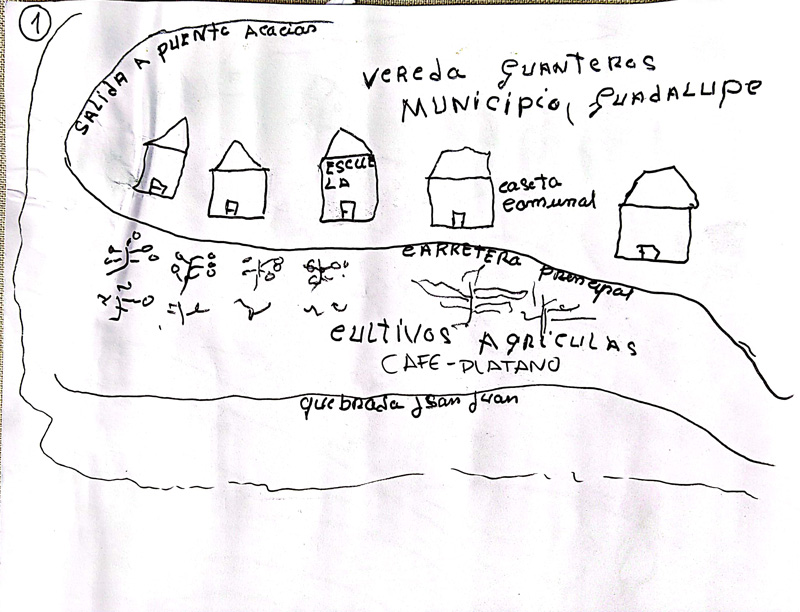 1
SALIDA A PUENTE Acacias
VEREDA GUANTEROS
MUNICIPIO, GUADALUPE
ESCUE
LA
caseta
comunal
CARRETERA PRINCIPAL
CULTIVOS AGRICULAS
CAFE-PLATANO
quebrada San Juan